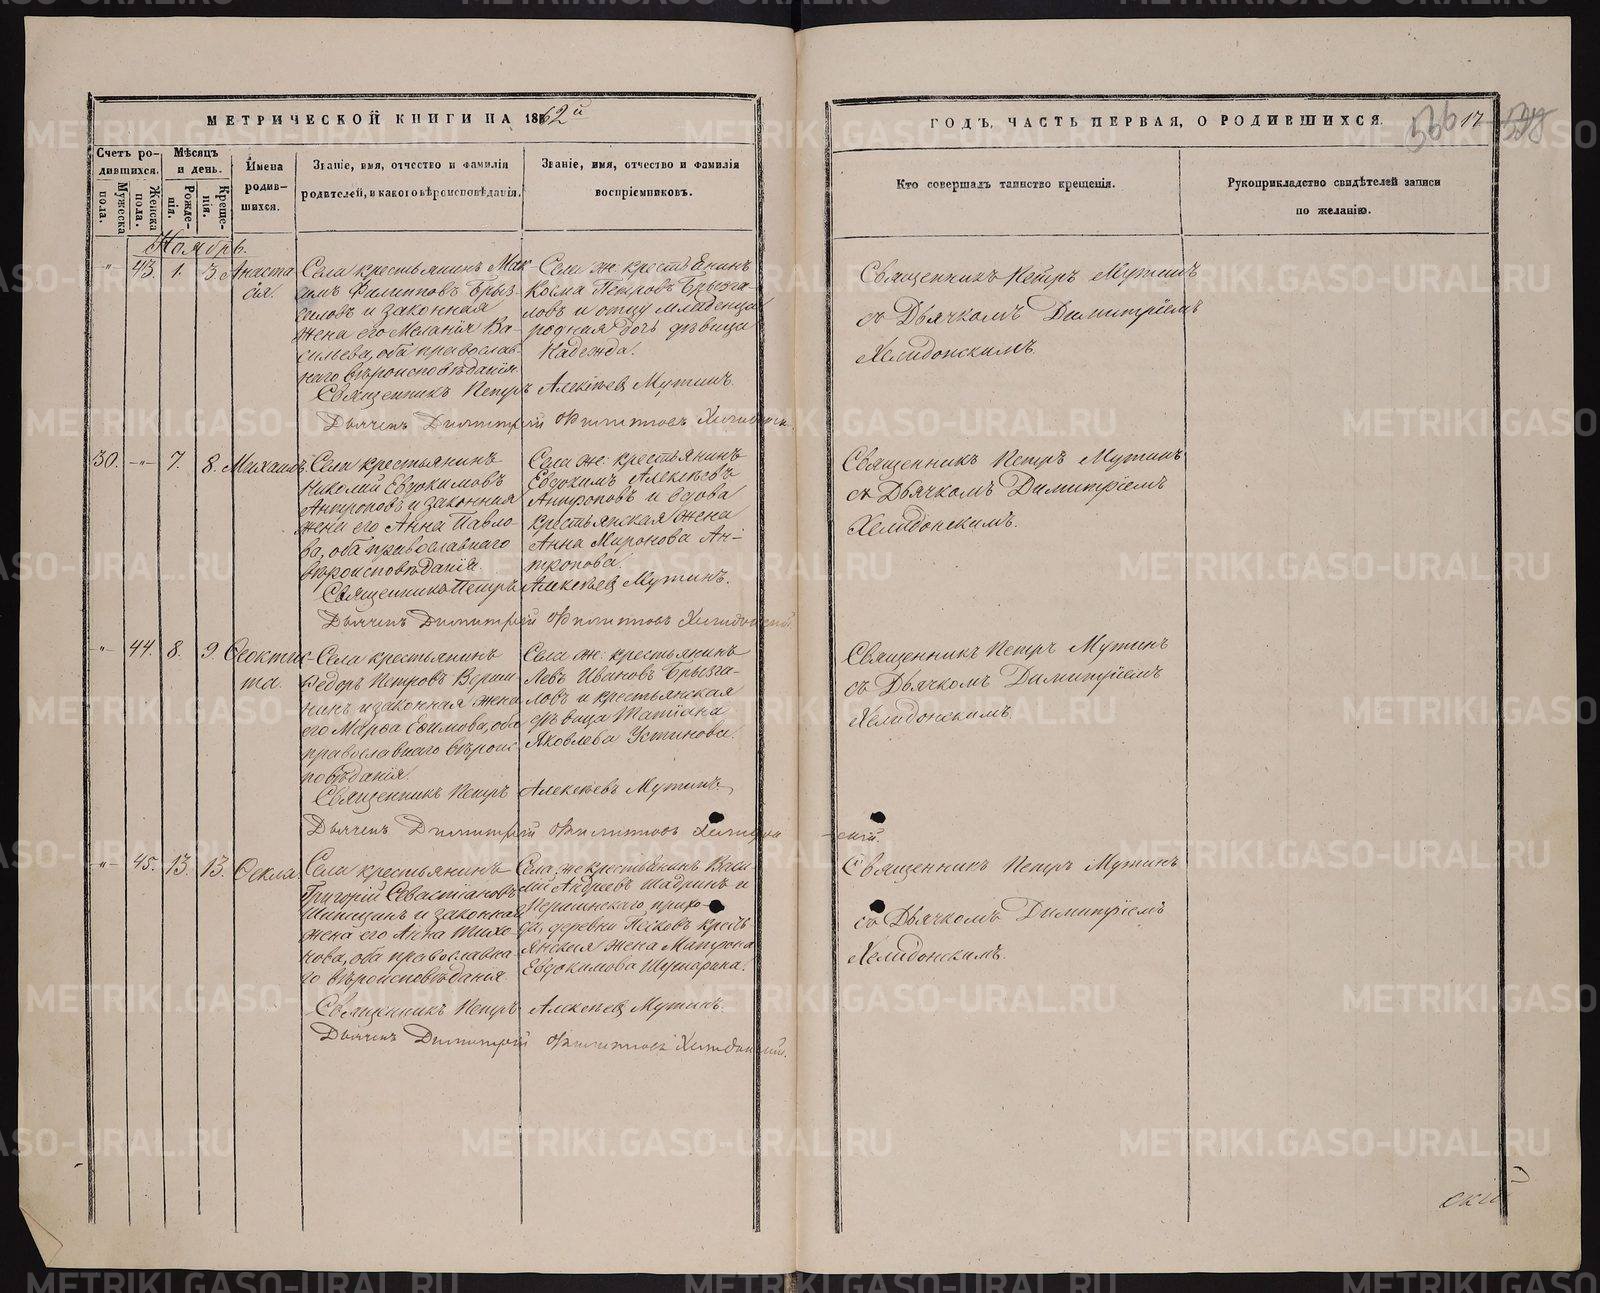 МЕТРИЧЕСКОЙ КНИГИ НА 1862й
ГОДЪ, ЧАСТЬ ПЕРВАЯ, О РОДИВШИХСЯ.
566 17
Счетъ родившихся.
Мужеска пола.
Женска пола.
Мѣсяцъ и день.
Рожденія.
Крещенія.
Имена родившихся.
Званіе, имя, отчество и фамилія
родителей, и какого вѣроисповѣданія.
Званіе, имя, отчество и фамилія
воспріемниковъ.
Кто совершалъ таинство крещенія.
Рукоприкладство свидѣтелей записи
по желанію.
Ноябрь.
" 43 1. 3 Анаста
сія.
Села крестьянинъ Мак
симъ Филипповъ Брыз
галовъ и законная
жена его Меланія Ва-
сильева, оба православ
наго вѣроисповѣданія
Села ж: крестьянинъ
Косма Петровъ Брызга-
ловъ и отцу младенца
родная дочь дѣвица
Надежда.
Священникъ Петръ Алексѣевъ Мутинъ.
Дьячекъ Димитрій Филипповъ Хелидонскій
Священникъ Петръ Мутинъ
съ Дьячкомъ Димитріемъ
Хелидонскимъ.
30. -"- 7. 8. Михаилъ
Села крестьянинъ
Николай Евдокимовъ
Антроповъ и законная
жена его Анна Павло-
ва, оба православнаго
вѣроисповѣданія.
Села ж: крестьянинъ
Евдокимъ Алексѣевъ
Антроповъ и вдова
крестьянская жена
Анна Миронова Ан-
тропова.
Священникъ Петръ Алексѣевъ Мутинъ.
Дьячекъ Димитрій Филипповъ Хелидонскій.
Священникъ Петръ Мутинъ
съ Дьячкомъ Димитріемъ
Хелидонскимъ.
" 44. 8. 9. Ѳеоктис-
та.
Села крестьянинъ
Ѳедоръ Петровъ Верши
нинъ и законная жена
его Марѳа Ефимова, оба
православнаго вѣроис
повѣданія.
Села ж: крестьянинъ
Левъ Ивановъ Брызга-
ловъ и крестьянская
дѣвица Татіана
Яковлева Устинова.
Священникъ Петръ Алексѣевъ Мутинъ.
Дьячекъ Димитрій Филипповъ Хелидон
-скій.
Священникъ Петръ Мутинъ
съ Дьячкомъ Димитріемъ
Хелидонскимъ.
" 45. 13. 13. Ѳекла.
Села крестьянинъ
Григорій Севастіановъ
и законная
жена его Анна Тихо-
нова, оба православна-
го вѣроисповѣданія.
Села же крестьянинъ Васи
лій Андреевъ Шадринъ и
Першинскаго прихо-
да, деревни Песковъ кресть
янская жена Матрона
Евдокимова
Священникъ Петръ Алексѣевъ Мутинъ.
Дьячекъ Димитрій Филипповъ Хелидонскій.
Священникъ Петръ Мутинъ
съ Дьячкомъ Димитріемъ
Хелидонскимъ.
скій
METRIKI.GASO-URAL.RU